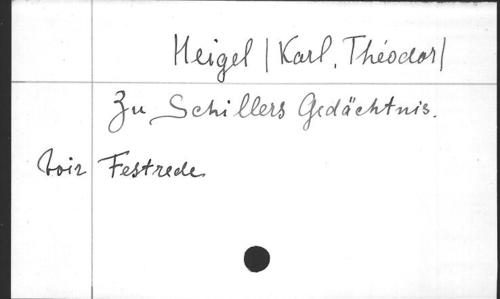 Heigel (Karl, Théodor)
Zu Schillers Gedächtnis.
Voir Festrede